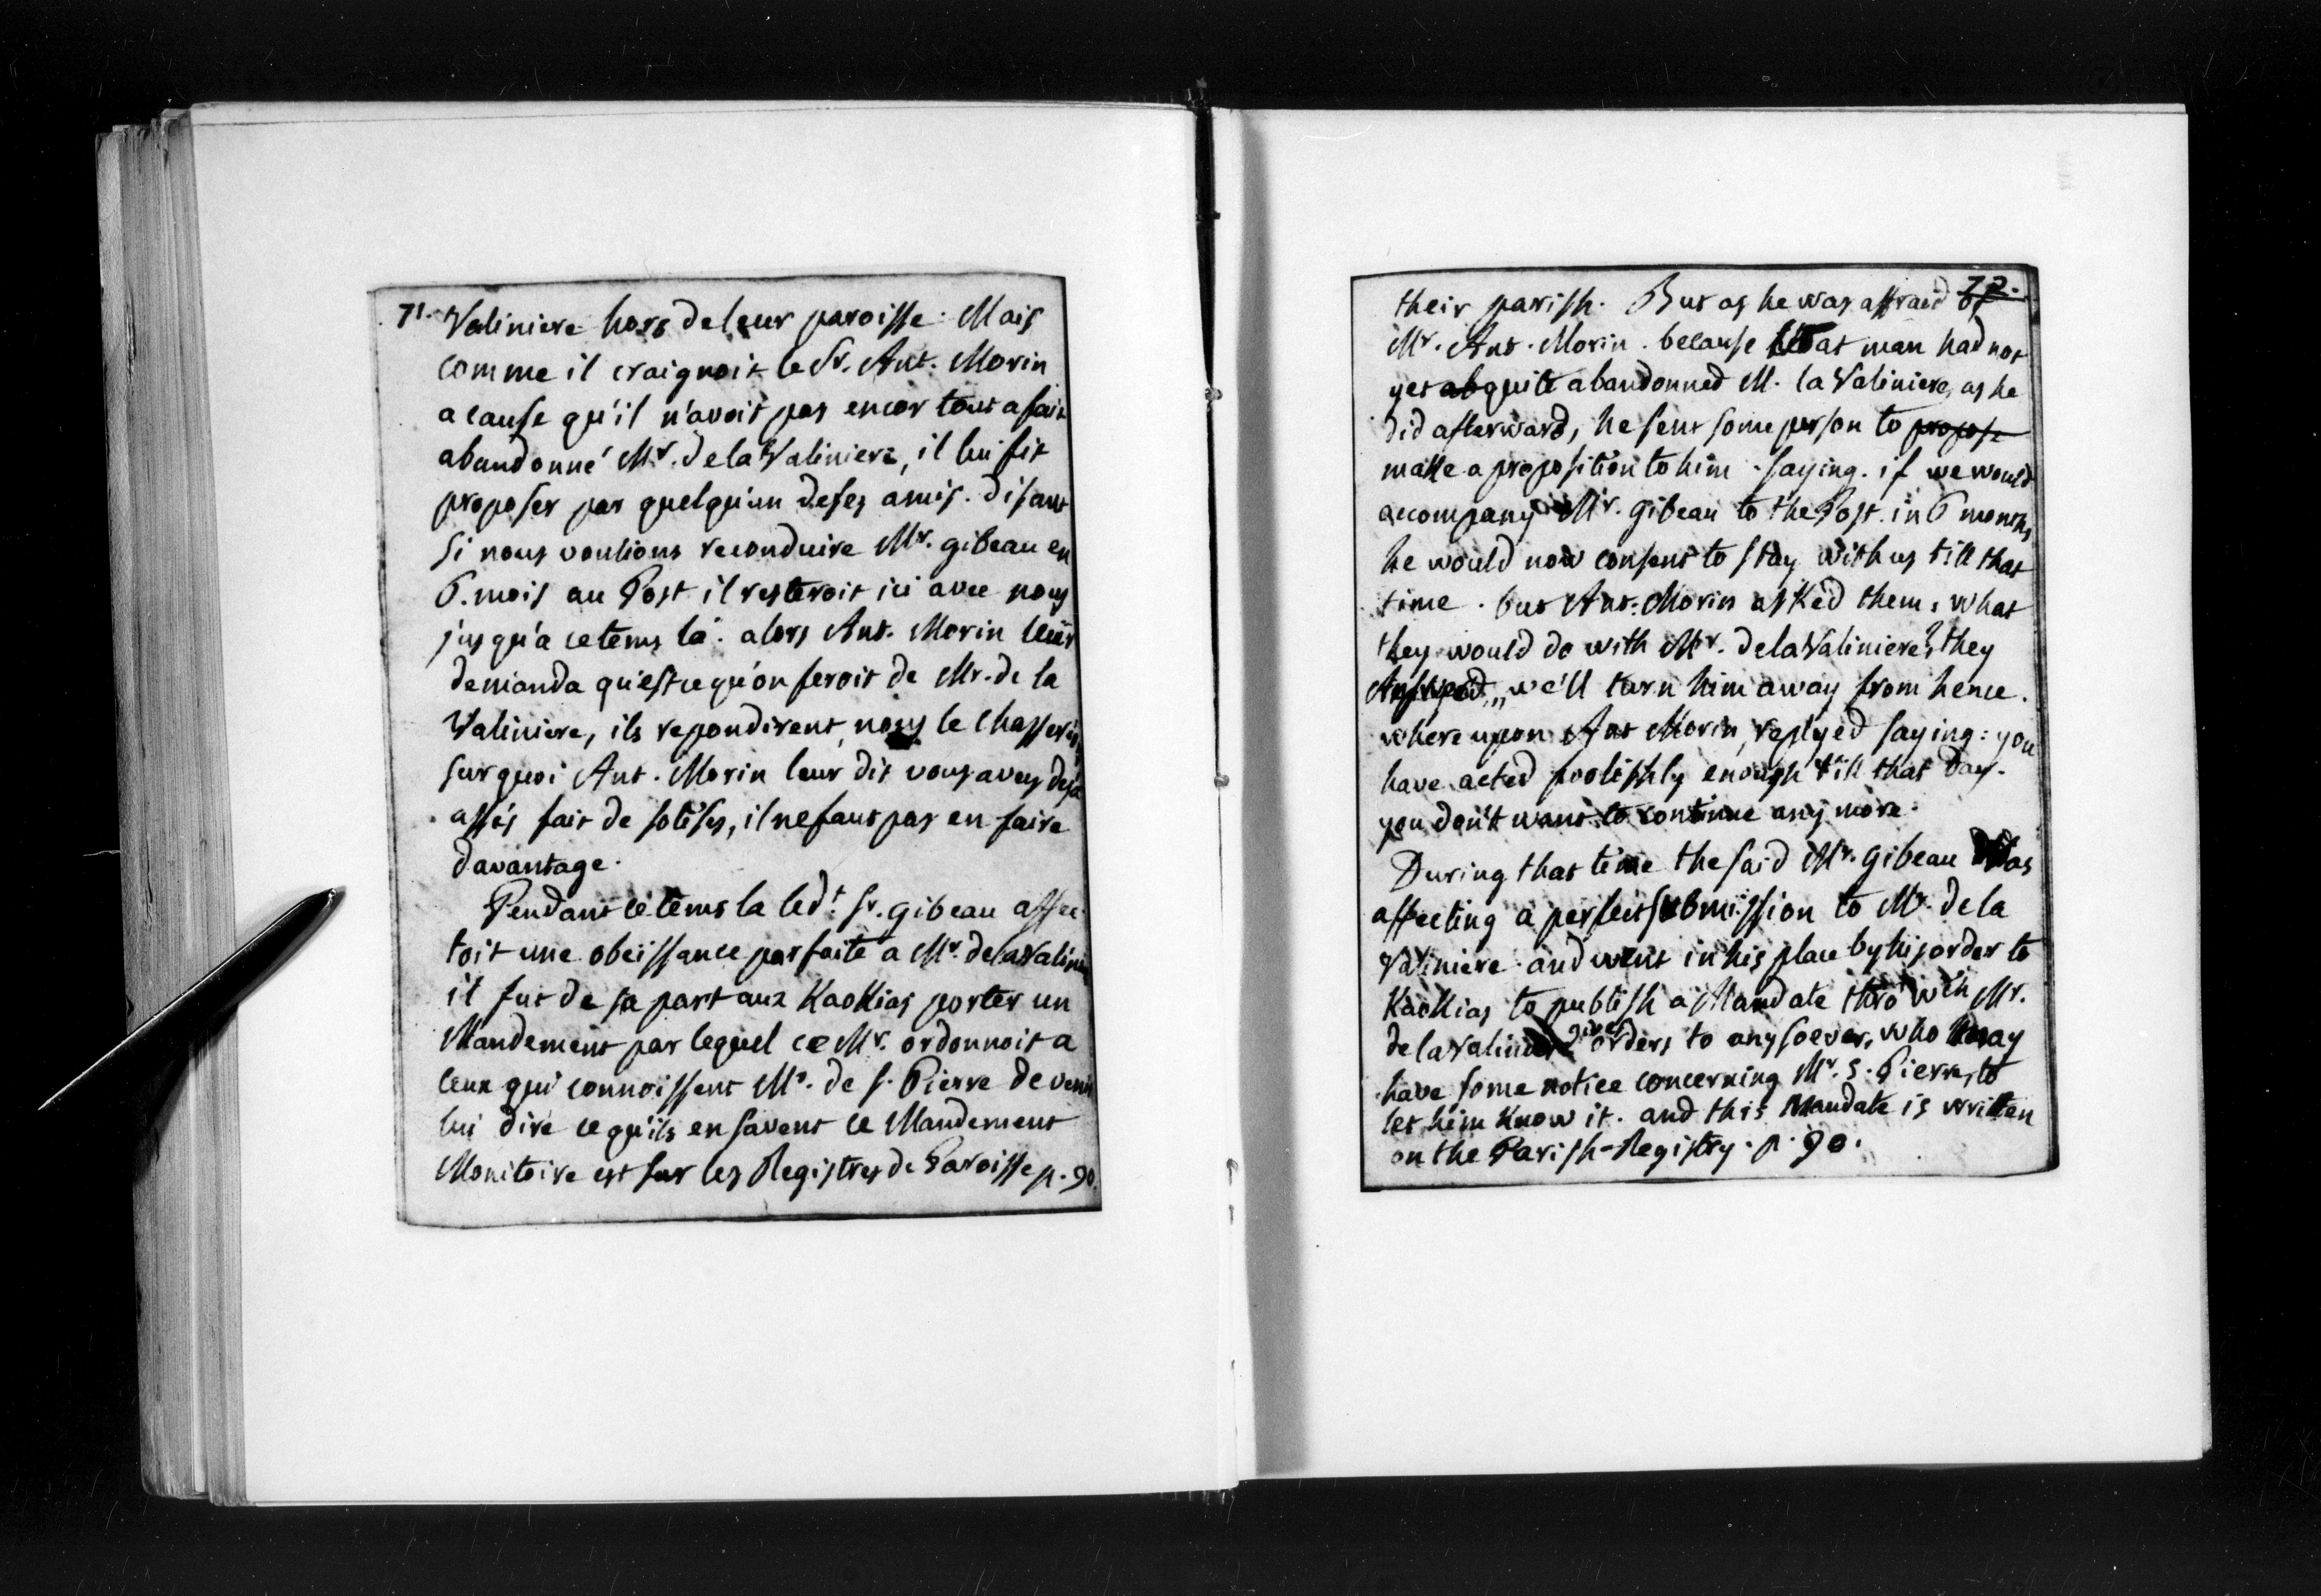 71. Valiniere hors de leur paroisse. Mais
comme il craignoit le Sr. Ant. Morin
a cause qu'il n'avoit pas encor tout a fait
abandonné Mr. de la Valiniere, il lui fit
proposer par quelqu'un de ses amis. disant
si nous voulions reconduire Mr. gibeau en
6. mois au Post il resteroit ici avec nous
jusqu'a ce tems la. alors Ant. Morin leur
demanda qu'est ce qu'on feroit de Mr. de la
Valiniere, ils repondirent, nous le chasserons
sur quoi Ant. Morin leur dit vous aves deja
assés fait de sotises, il ne faut pas en faire
davantage.
Pendant ce tems la led.t Sr. gibeau affec-
toit une obeissance parfaite a Mr. de la Valiniere
il fut de sa part aux Kaokias porter un
Mandement par lequel ce Mr. ordonnoit a
ceux qui connoissent Mr. de S. Pierre de venir
lui dire ce qu'ils en savent ce Mandement
Monitoire est sur les Registres de Paroisse p. 90.
72.
their parish. But as he was affraid of
Mr. Ant. Morin. because that man had not
yet ab quite abandonned M. la Valiniere, as he
did afterward, he sent some person to propose
make a proposition to him. saying. if we would
accompany Mr. gibeau to the Post. in 6 months
he would now consent to stay with us till that
time. but Ant: Morin asked them, what
they would do with Mr. de la Valiniere? they
Answered,, we'll turn him away from hence.
where upon Ant Morin, replyed saying: you
have acted foolishly enough till that day.
you don't want to continue any more.
During that time the said Mr. Gibeau was
affecting a perfect submission to Mr. de la
Valiniere. and went in his place by his order to
Kaokias to publish a Mandate thro' wch Mr.
de la Valiniere gives orders to any soever, who may
have some notice concerning Mr. S. Pierre, to
let him know it. and this Mandate is written
on the Parish-Registry. p. 90.